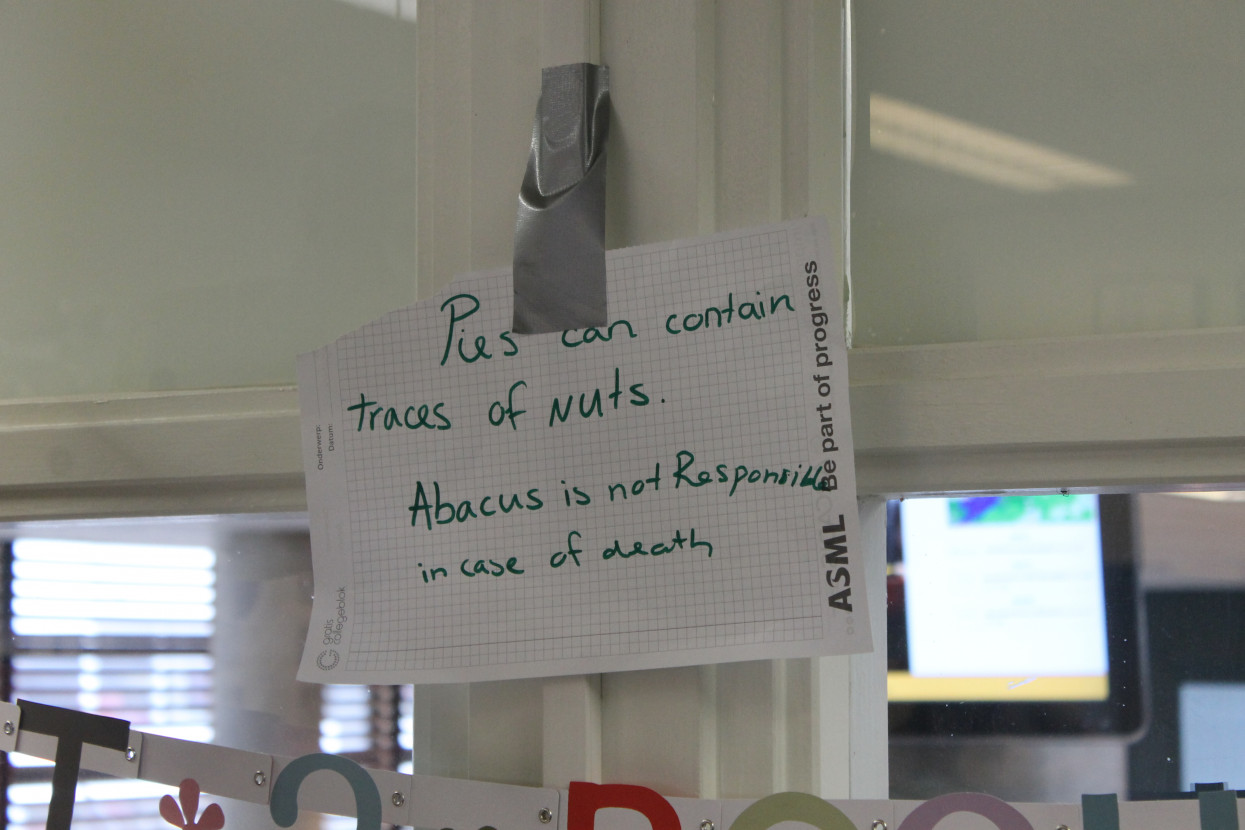 Pies can contain
traces of nuts.
Abacus is not Responsible
in case of death
ASML Be part of progress
Onderwerp:
Datum:
gratis
collegeblok